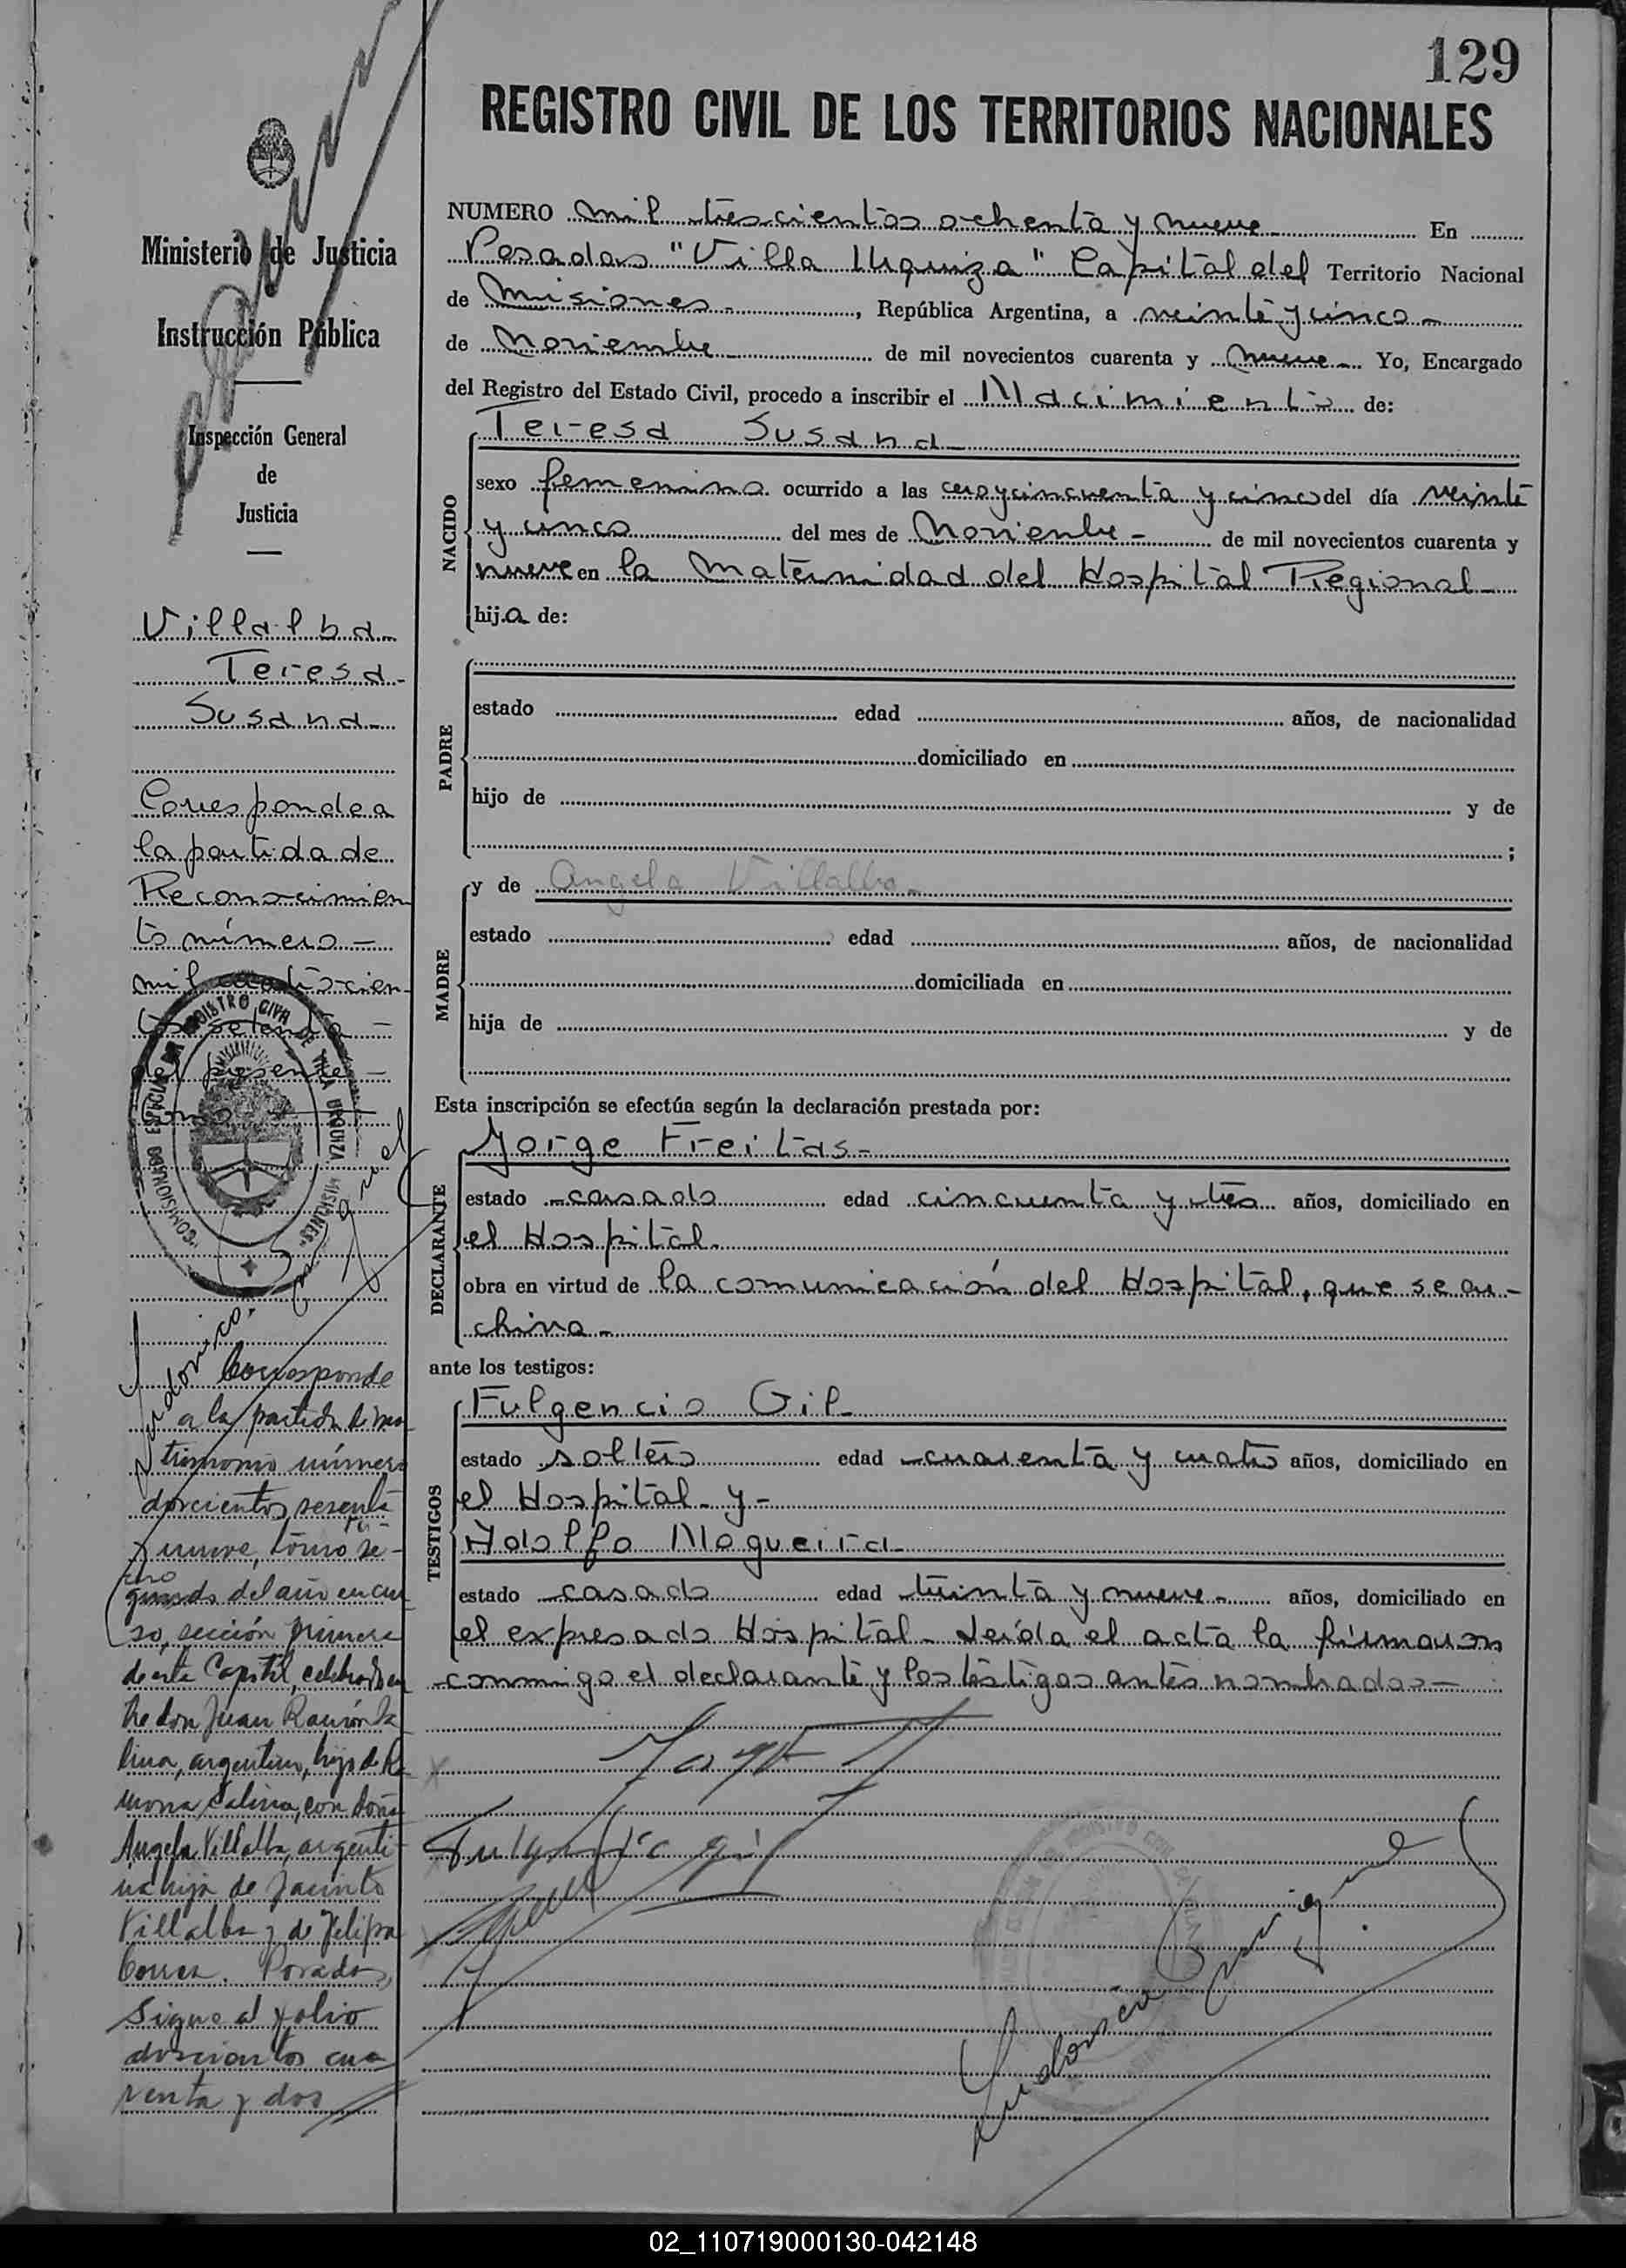 129
REGISTRO CIVIL DE LOS TERRITORIOS NACIONALES
Ministerio de Justicia
Instrucción Pública
Inspección General
de
Justicia
Villalba
Teresa
Susana
Corresponde a
la partida de
Reconocimien
to número
mil cuatrocien
tos setenta
del presente
tomo
COMISIONADO ESPECIAL DEL REGISTRO CIVIL DE VILLA URQUIZA MISIONES
Corresponde
a la partida de ma
trimonio número
doscientos sesenta
y nueve, tomo se
gundo del año en cur
so, sección primera
de esta Capital, celebrado en
tre don Juan Ramón Sa
lina, argentino, hijo de Ra
mona Salina, con doña
Angela Villalba, argenti
na hija de Jacinto
Villalba y de Felipa
Correa. Posadas,
Sigue al folio
doscientos cua
renta y dos
NUMERO mil trescientos ochenta y nueve En
Posadas "Villa Urquiza" Capital del Territorio Nacional
de Misiones, República Argentina, a veinte y cinco
de Noviembre de mil novecientos cuarenta y nueve Yo, Encargado
del Registro del Estado Civil, procedo a inscribir el Nacimiento de:
Teresa Susana
NACIDO
sexo femenino ocurrido a las cero y cincuenta y cinco del día veinte
y cinco del mes de Noviembre de mil novecientos cuarenta y
nueve en la Maternidad del Hospital Regional
hija de:
PADRE
estado edad años, de nacionalidad
domiciliado en
hijo de y de
;
MADRE
y de Angela Villalba
estado edad años, de nacionalidad
domiciliada en
hija de y de
Esta inscripción se efectúa según la declaración prestada por:
DECLARANTE
Jorge Freitas
estado casado edad cincuenta y tres años, domiciliado en
el Hospital
obra en virtud de la comunicación del Hospital, que se ar-
chiva
ante los testigos:
TESTIGOS
Fulgencio Gil
estado soltero edad cuarenta y cuatro años, domiciliado en
el Hospital y
Adolfo Nogueira
estado casado edad treinta y nueve años, domiciliado en
el expresado Hospital. Leída el acta la firmaron
conmigo el declarante y los testigos antes nombrados
02_110719000130-042148